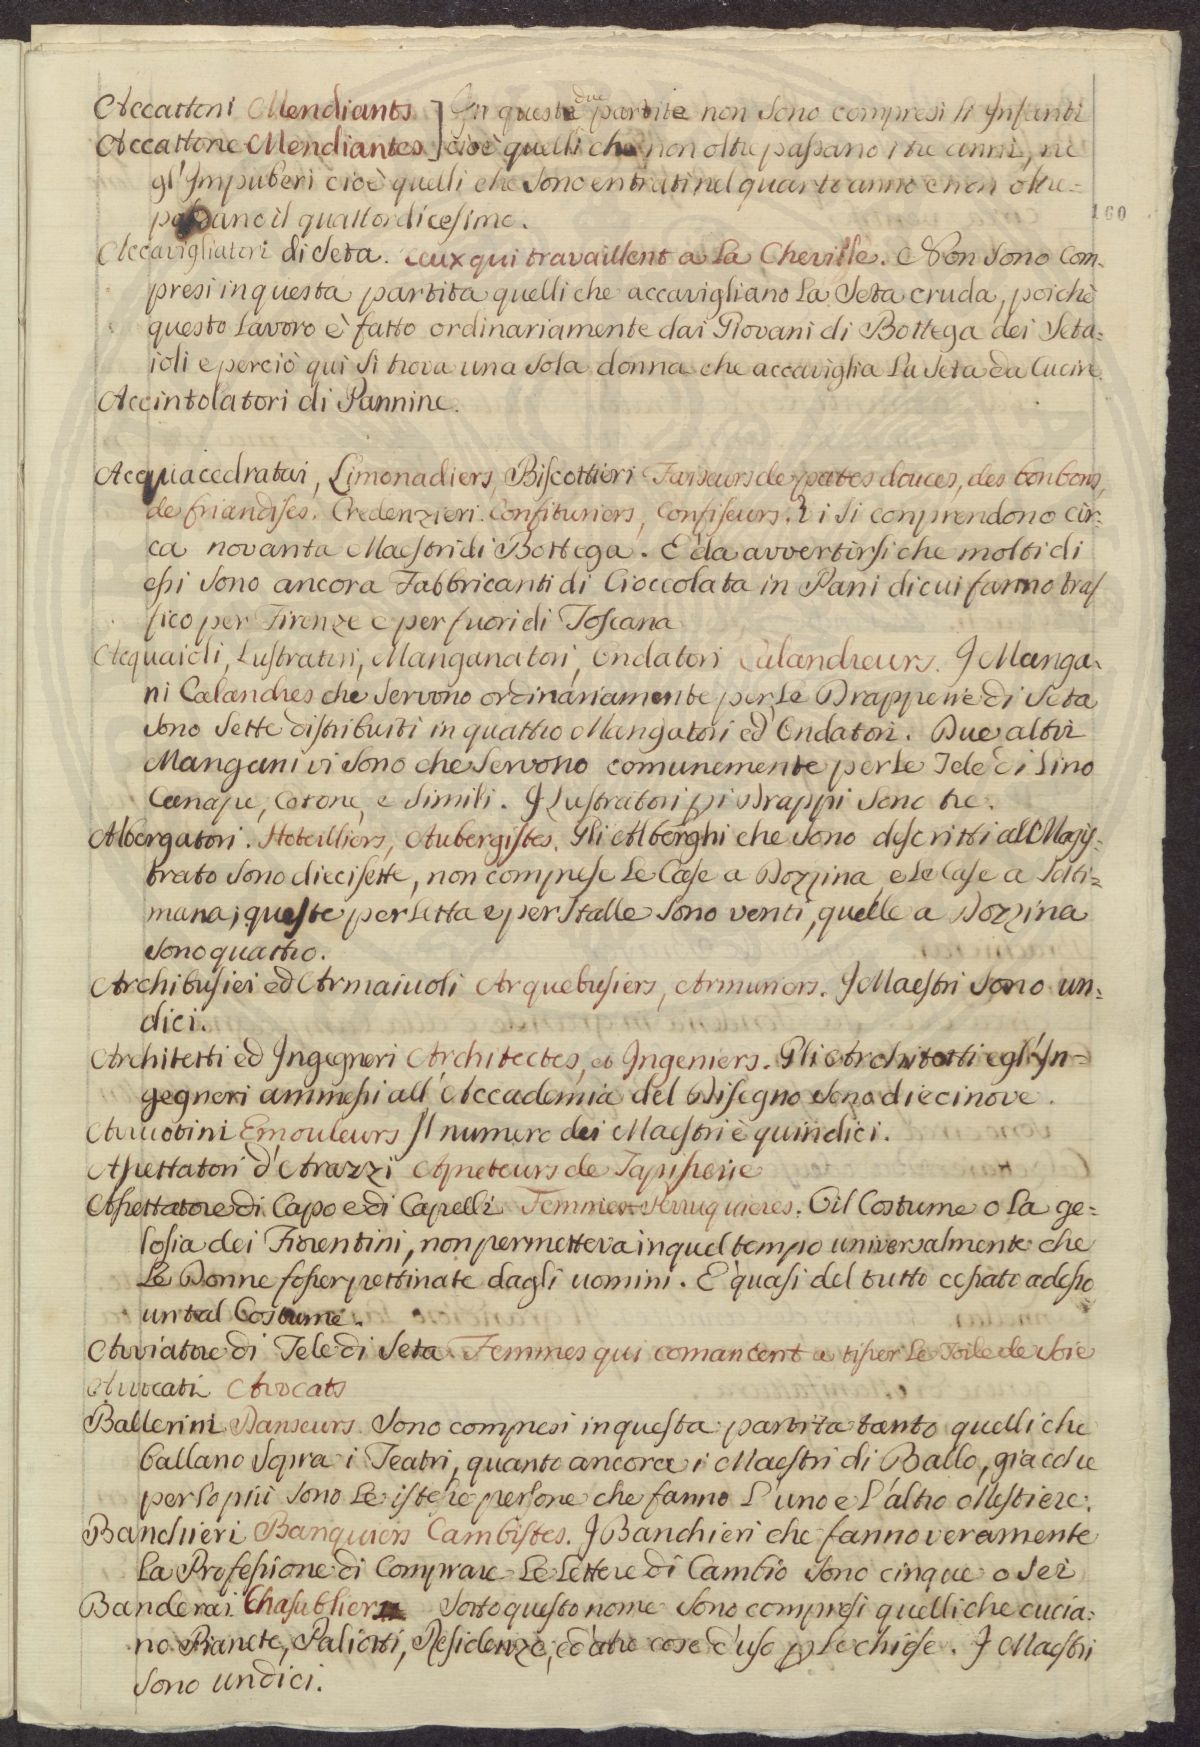 Accattoni Mendiants ] In queste due partite non sono compresi li Infanti
Accattone Mendiantes ] cioè quelli che non oltrepassano i tre anni, ne
gl'Impuberi cioè quelli che sono entrati nel quarto anno e non oltre=
passano il quattordicesimo.
160
Accavigliatori di Seta. Ceux qui travaillent a la Cheville. Non sono com=
presi in questa partita quelli che accavigliano la Seta cruda, poichè
questo lavoro è fatto ordinariamente dai Giovani di Bottega dei Seta=
ioli e perciò quì si trova una sola donna che accaviglia la Seta da Cucire.
Accintolatori di Pannine.
Acquacedratai, Limonadiers, Biscottieri Faiseurs de pates douces, des bonbons,
de friandises. Credenzieri. Confituriers, Confiseurs. Vi si conprendono cir=
ca novanta Maestri di Bottega. E' da avvertirsi che molti di
essi sono ancora Fabbricanti di Cioccolata in Pani di cui fanno traf
fico per Firenze e per fuori di Toscana
Acquaioli, Lustratori, Manganatori, Ondatori Calandreurs. I Manga=
ni Calandres che servono ordinariamente per le Drapperie di Seta
sono sette distribuiti in quattro Mangatori ed Ondatori. Due altri
Mangani vi sono che servono comunemente per le Tele di Lino
Canape, Cotone, e simili. I Lustratori di Drappi sono tre.
Albergatori. Hoteilliers, Aubergistes. Gli Alberghi che sono descritti al Magis=
trato sono diecisette, non comprese le Case a Dozzina, e le Case a Setti=
mana; queste per Letta e per Stalle sono venti, quelle a Dozzina
sono quattro.
Archibusieri ed Armaiuoli Arquebusiers, Armuriers. I Maestri sono un=
dici.
Architetti ed Ingegneri Architectes, et Ingeniers. Gli Architetti e gl'In=
gegneri ammessi all'Accademia del Disegno sono diecinove.
Arruotini Emouleurs Il numero dei Maestri è quindici.
Assettatori d'Arazzi Apreteurs de Tapisserie
Assettatore di Capo e di Capelli Femmes Perruquieres. Il Costume o la ge=
losia dei Fiorentini, non permetteva in quel tempo universalmente che
le Donne fosser pettinate dagli uomini. E' quasi del tutto cessato adesso
un tal Costume.
Avviatore di Tele di Seta Femmes qui comancent a tisser le Toile de Soie
Avvocati Avocats
Ballerini Danseurs. Sono compresi in questa partita tanto quelli che
ballano sopra i Teatri, quanto ancora i Maestri di Ballo, giacchè
per lo più sono le istesse persone che fanno l'uno e l'altro Mestiere.
Banchieri Banquiers Cambistes. I Banchieri che fanno veramente
la Professione di Comprare le Lettere di Cambio sono cinque o sei
Banderai Chasubliers Sotto questo nome sono compresi quelli che cucia=
no Pianete, Paliotti, Residenze, ed altre cose d'uso p le chiese. I Maestri
sono undici.